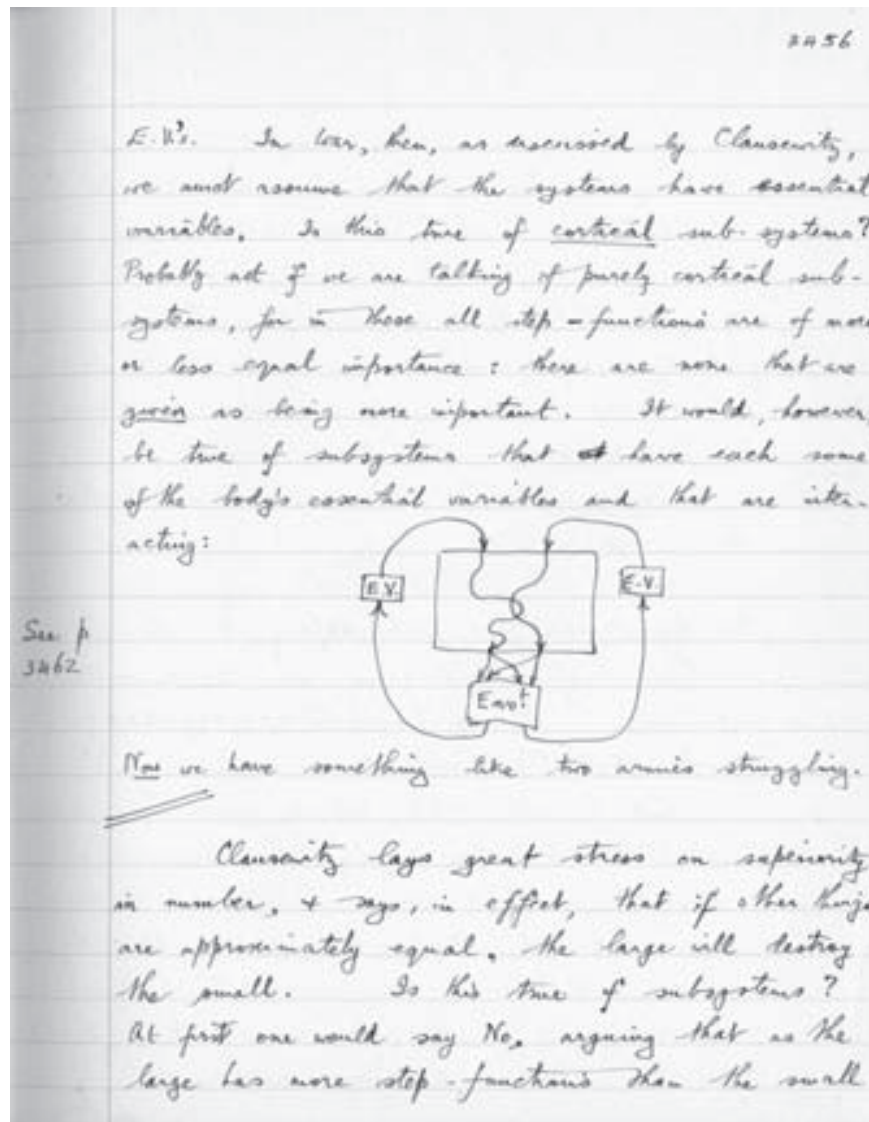 3456
E.V's. In war, then, as discussed by Clausewitz,
we must assume that the systems have essential
variables. Is this true of cortical sub-systems?
Probably not if we are talking of purely cortical sub-
systems, for in these all step-functions are of more
or less equal importance: there are none that are
given as being more important. It would, however,
be true of subsystems that have each some
of the body's essential variables and that are inter-
acting:
E.V.
E.V.
See p
3462
Envt
Now we have something like two armies struggling.
Clausewitz lays great stress on superiority
in number, & says, in effect, that if other things
are approximately equal, the large will destroy
the small. Is this true of subsystems?
At first one would say No, arguing that as the
large has more step-functions than the small